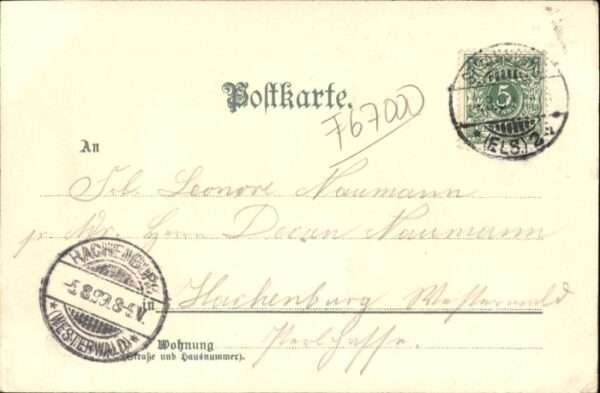 Postkarte.
F67000
5
(ELS.) 2
An
Frl. Leonore Naumann
pr. Adr. Herrn Decan Naumann
HACHENBURG
5.8.99.8-9V.
* (WESTERWALD) *
in Hachenburg Westerwald
Wohnung
(Straße und Hausnummer).